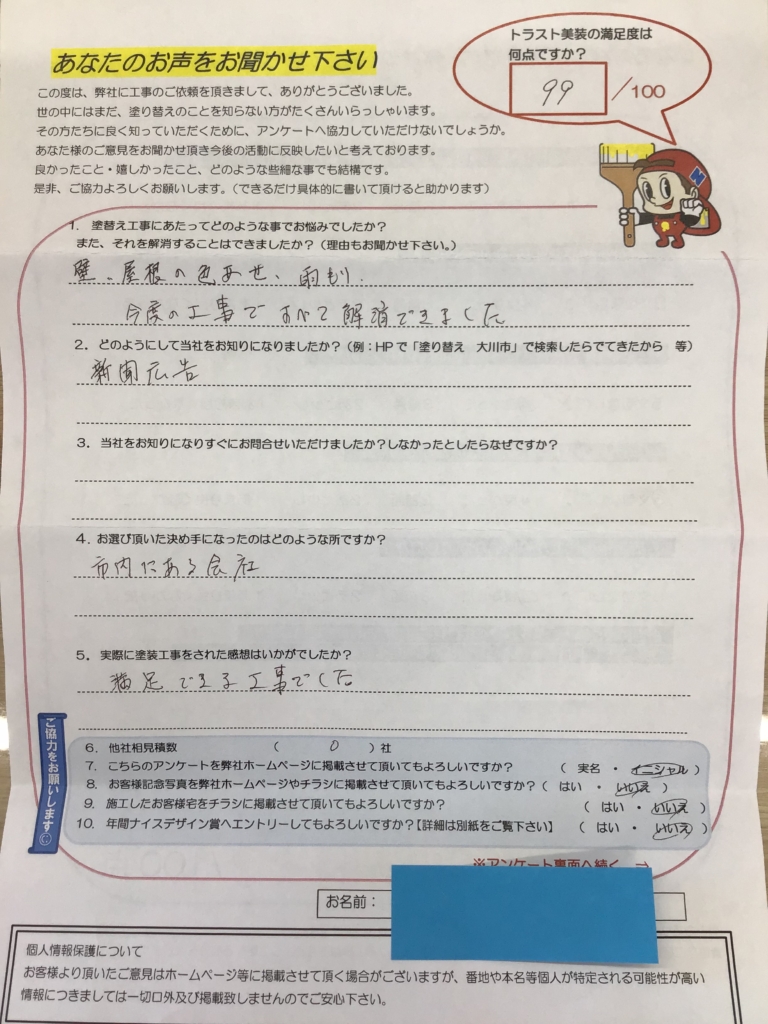 あなたのお声をお聞かせ下さい
トラスト美装の満足度は
何点ですか?
99/100
この度は、弊社に工事のご依頼を頂きまして、ありがとうございました。
世の中にはまだ、塗り替えのことを知らない方がたくさんいらっしゃいます。
その方たちに良く知っていただくために、アンケートへ協力していただけないでしょうか。
あなた様のご意見をお聞かせ頂き今後の活動に反映したいと考えております。
良かったこと・嬉しかったこと、どのような些細な事でも結構です。
是非、ご協力よろしくお願いします。(できるだけ具体的に書いて頂けると助かります)
1. 塗替え工事にあたってどのような事でお悩みでしたか?
また、それを解消することはできましたか?(理由もお聞かせ下さい。)
壁、屋根の色あせ、雨もり.
今度の工事ですべて解消できました
2. どのようにして当社をお知りになりましたか?(例:HPで「塗り替え 大川市」で検索したらでてきたから 等)
新聞広告
3. 当社をお知りになりすぐにお問合せいただけましたか?しなかったとしたらなぜですか?
4. お選び頂いた決め手になったのはどのような所ですか?
市内にある会社
5. 実際に塗装工事をされた感想はいかがでしたか?
満足できる工事でした
ご協力をお願いします
6. 他社相見積数 ( 0 )社
7. こちらのアンケートを弊社ホームページに掲載させて頂いてもよろしいですか? ( 実名 ・ イニシャル )
8. お客様記念写真を弊社ホームページやチラシに掲載させて頂いてもよろしいですか?( はい ・ いいえ )
9. 施工したお客様宅をチラシに掲載させて頂いてもよろしいですか? ( はい ・ いいえ )
10. 年間ナイスデザイン賞へエントリーしてもよろしいですか?【詳細は別紙をご覧下さい】 ( はい ・ いいえ )
※アンケート裏面へ続く →
お名前:
個人情報保護について
お客様より頂いたご意見はホームページ等に掲載させて頂く場合がございますが、番地や本名等個人が特定される可能性が高い
情報につきましては一切口外及び掲載致しませんのでご安心下さい。